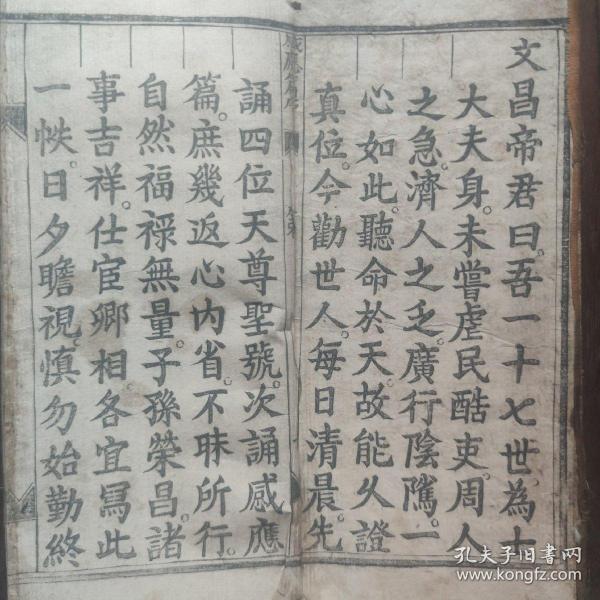 文昌帝君曰。吾一十七世。為士
大夫身。未嘗虐民酷吏。周人
之急。濟人之乏。廣行陰隲。一
心如此。聽命於天。故能久證
真位。今勸世人。每日清晨。先
感應篇序
誦四位天尊聖號。次誦感應
篇。庶幾返心內省。不昧所行。
自然福祿無量。子孫榮昌。諸
事吉祥。仕宦卿相。各宜寫此
一帙。日夕瞻視。慎勿始勤終
孔夫子旧书网
www.kongfz.com